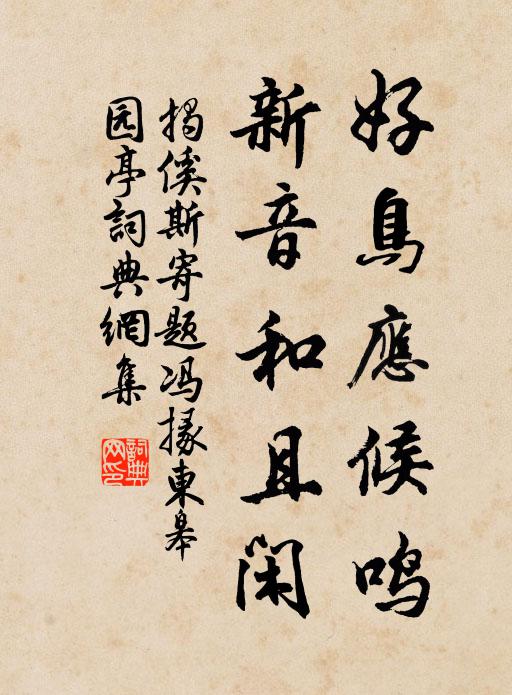 好鳥應候鳴
新音和且闲
揭傒斯寄题冯掾東皋
园亭詞典網集
詞典网印